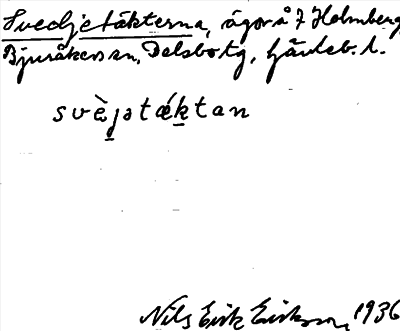 Svedjetäkterna, ägor å 7 Holmberg
Bjuråkers sn, Delsbo tg, Gävleb. l.
svèjətǽktan
Nils Erik Eriksson, 1936